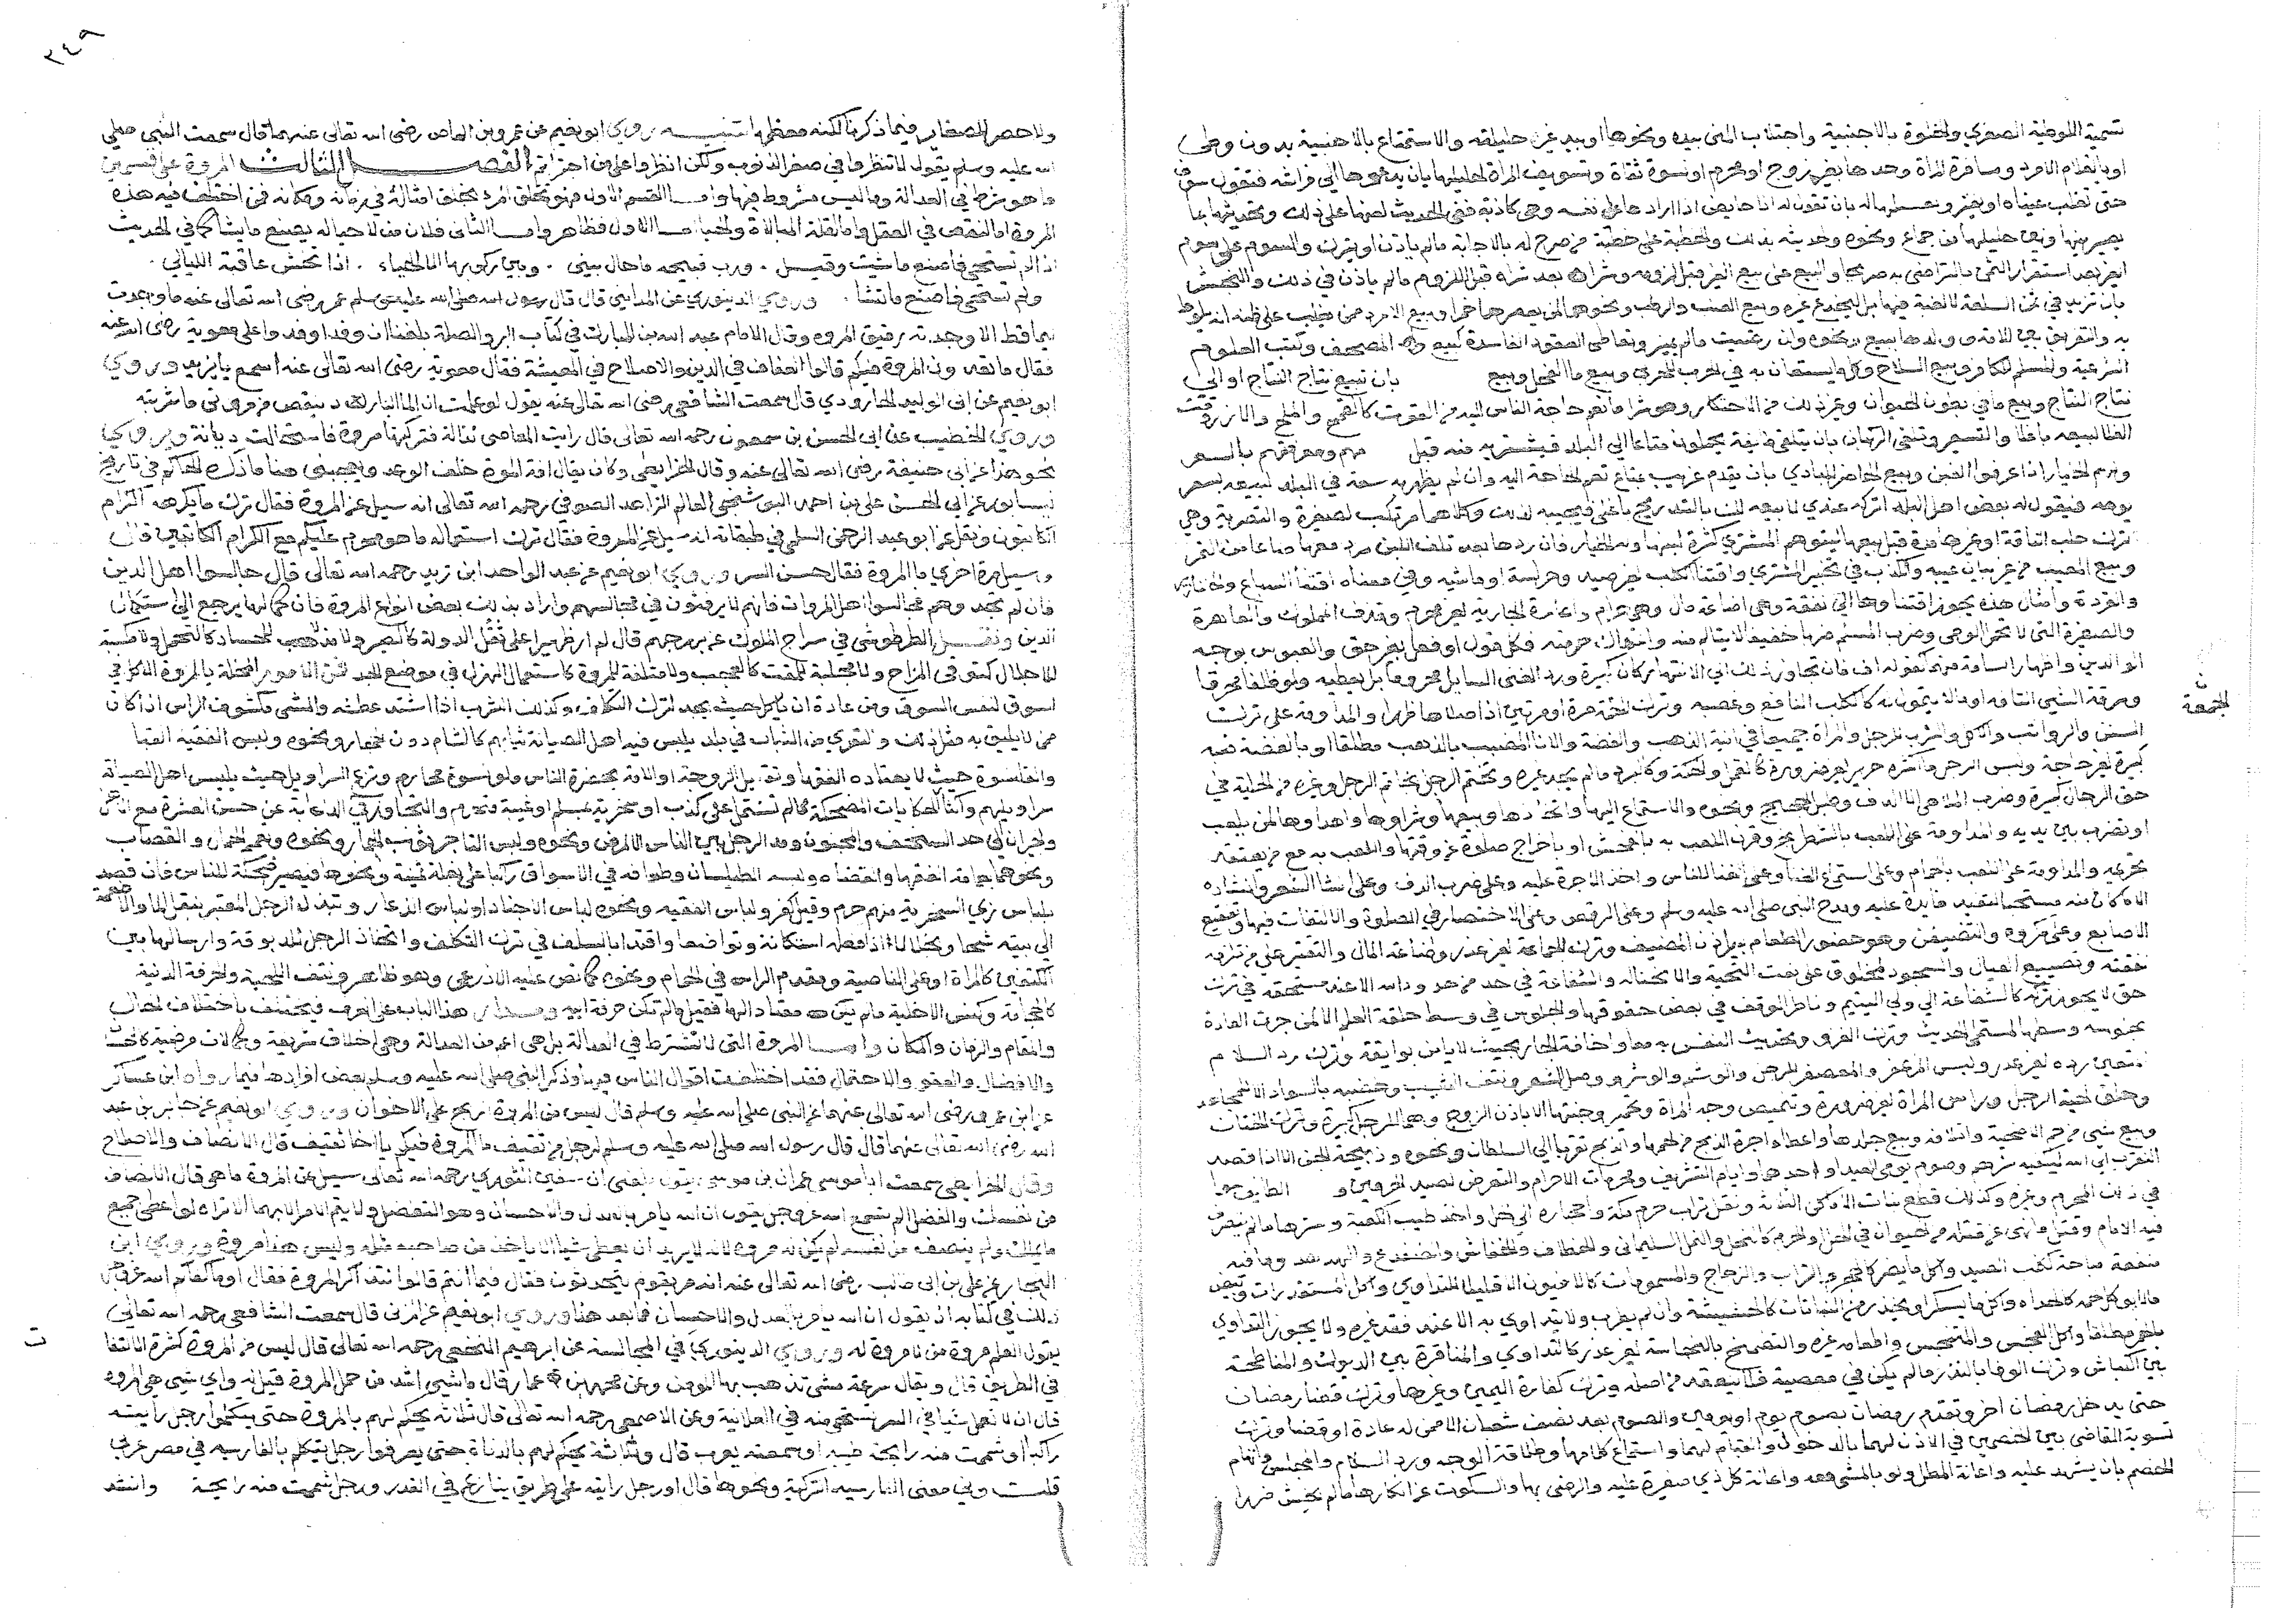 تسمية اللوطية الصغرى والخلوة بالاجنبية واجتلاب المنى بيده ونحوها او بيد غير حليلته والاستمتاع بالاجنبية بدون وطى
او بالغلام الامرد ومسافرة المراة وحدها بغير زوج او محرم او نسوة ثقاة وتسويف المراة لحليلها بان يدعوها الى فراشه فتقول سوف
حتى تغلب عيناه او يفتر بان تقول له انا حايض اذا ارادها على نفسه وهى كاذبة ففى الحديث لعنها على ذلك
من جماع ونحوه وتحديثه بذلك والخطبة على خطبة من صرح له بالاجابة مالم ياذن او يترك والسوم على سوم
بعد استقرار الثمن بالتراضى به صريحا والبيع على بيع الغير قبل لزومه وشراه بعد شراه قبل اللزوم مالم ياذن فى ذلك والنجش
بان تزيد فى ثمن السلعة لا لرغبة فيها بل ليخدع غيره وبيع العنب والرطب ونحوهما لمن يعصرها خمرا وبيع الامرد ممن يغلب على ظنه انه يلوط
به والتفريق بين الامة وولدها ببيع ونحوه وان رضيت مالم يميز وتعاطى العقود الفاسدة كبيع المصحف وكتب العلوم
الشرعية والمسلم لكافر وبيع السلاح وكلما يستعان به فى الحرب لحربى وبيع ما الفحل وبيع بان تبيع نتاج النتاج او الى
نتاج النتاج وبيع ما فى بطون الحيوان وغير ذلك من الاحتكار وهو شرا ما تعم حاجة الناس اليه من القوت كالقمح والملح والارز وقت
الغلا ليبيعه باغلا والتسعير وتلقى الركبان بان يتلقى طايفة يحملون متاعا الى البلد فيشتريه منه قبل ومعرفتهم بالسعر
ولهم الخيار اذا عرفوا الغبن وبيع الحاضر للبادى بان يقدم غريب بمتاع تعم الحاجة اليه وان لم يظهر به سعة فى البلد ليبيعه بسعر
يومه فيقول له بعض اهل البلد اتركه عندى لابيعه لك بالتدريج باغلى فيجيبه لذلك وكلاهما مرتكب لصغيرة والتصرية وهى
ترك حلب الناقة او غيرها مدة قبل بيعها ليتوهم المشترى كثرة لبنها وله الخيار فان ردها بعد تلف اللبن رد معها صاعا من التمر
وبيع المعيب من غير بيان عيبه والكذب فى تخيير المشترى واقتنا الكلب لغير صيد وحراسة او ماشيه وفى معناه اقتنا السباع والخنازير
والقردة وامثال هذه يجوز اقتنا وهى اضاعة مال وهى حرام واعارة الجارية لغير محرم وقذف المملوك والعاهرة
والصغيرة التى لا تحتمل الوطى وضرب المسلم ضربا خفيفا لا يناله منه وانتهاك حرمته فكل قول او فعل بغير حق والعبوس بوجه
الوالدين واظهار اساءة منه كقوله اف فان تجاوز ذلك الى الانتهار كان كبيرة ورد الغنى السايل محروما بل يعطيه ولو ظلفا محرقا
وسرقة الشيى التافه او ما لا يتمول به كالكلب النافع وغصبه وترك الجمعة مرة او مرتين اذا صلاها ظهرا والمداومة على ترك
السنن والرواتب والاكل والشرب للرجل والمراة جميعا فى انية الذهب والفضة والانا المضبب بالذهب مطلقا او بالفضة ضبة
كبيرة لغير حاجة ولبس الرجل حريرا لغير ضرورة كالقمل والحكة وكالبرد مالم يجد غيره وتختم الرجل بخاتم وغيره من الحلية فى
حق الرجال كبيرة وضرب الملاهى الا الدف وطبل الحجيج ونحوه والاستماع اليها واتخاذها وبيعها وشراوها واهداوها لمن يلعب
او تضرب بين يديه والمداومة على اللعب بالشطرنج وقرن اللعب به بالفحش او باخراج صلوة عن وقتها واللعب به مع من يعتقد
تحريمه والمداومة على اللعب بالحمام وعلى استماع الغنا وعلى الغنا للناس واخذ الاجرة عليه وعلى ضرب الدف وعلى انشا الشعر وانشاده
الا ما كان منه مستحبا لتقييد فايدة علمية ومدح النبى صلى الله عليه وسلم وعلى الرقص وعلى الاختصار فى الصلوة والالتفات فيها وتفقيع
الاصابع وهو حضور الطعام بغير اذن المضيف وترك الجماعة لغير عذر واضاعة المال والتقتير على من تلزمه
نفقته وتضييع العيال والسجود لمخلوق على نعت التحية والانحنا له والشفاعة فى حد من حدود الله الا عند مستحقه فى ترك
حق لا يجوز تركه كالشفاعة الى ولى اليتيم وناظر الوقف فى بعض حقوقها والجلوس فى وسط حلقة العلم الا لمن جرت العادة
بجلوسه وسطها لمستملى الحديث وتحديث النفس به معاد اخافة الجار بحيث لا يامن بوايقه وترك رد السلام
رده لغير عذر ولبس المزعفر والمعصفر للرجل والوشم والوشر ووصل الشعر ونتف الشيب وخضبه بالسواد الا للمجاهد
وحلق لحية الرجل وراس المراة لغير ضرورة وتنميص وجه المراة وتحمير وجنتها الا باذن الزوج وهما للرجل كبيرة وترك الختان
وبيع شى من لحم الاضحية واتلافه وبيع جلدها واعطاء اجرة الذبح من لحمها والذبح تقربا الى السلطان ونحوه وذبيحة للجن الا اذا قصد
التقرب الى الله ليكفيه شرهم وصوم يومى العيد او احدهما وايام التشريق ومحرمات الاحرام والتعرض لصيد الحرمين و الطايف
فى ذلك المحرم وغيره وكذلك قطع نبات الاماكن الثلاثة ونقل تراب حرم مكة واحجاره الى الحل واخذ طيب الكعبة وسترها مالم يصرف
فيه الامام وقتل ما نهى عن قتله من الحيوان فى الحل والحرم كالنحل والنمل السليمانى والخطاف والخفاش والضفدع والهدهد وما فيه
منفعة مباحة كلب الصيد واكل ما يضر كالحجر والتراب والزجاج والمسمومات كالافيون الا قليلا للتداوى واكل المستقذرات
مالا يوكل لحمه كالحداة واكل ما يسكر او يخدر من النباتات كالحشيشة وان لم يطرب ولا يتداوى به الا عند فقد غيره ولا يجوز التداوى
بالخمر مطلقا واكل النجس والمتنجس واطعامه غيره والتضمخ بالنجاسة لغير عذر كالتداوى والمناقرة بين الديوك والمناطحة
بين الكباش وترك الوفا بالنذر مالم يكن فى معصية فلا ينعقد من اصله وترك كفارة اليمين وغيرها وترك قضا رمضان
حتى يدخل رمضان اخر وتقدم رمضان بصوم يوم او يومين والصوم بعد نصف شعبان الا لمن له عادة او قضا وترك
تسوية القاضى بين الخصمين فى الاذن لهما بالدخول والقيام لهما واستماع كلامهما وطلاقة الوجه ورد السلام والمجلس واتهام
الخصم بان يشهد عليه واعانة المطل ولو بالمشى معه واعانة كل ذى صغيرة عليه والرضى بها والسكوت عن انكارها مالم يخش ضررا
الجمعة
٢٤٩
ولا حصر للصغاير فيما ذكرنا لكنه معظمها تنبيه روى ابو نعيم عن عمرو بن العاص رضى الله تعالى عنهما قال سمعت النبى صلى
الله عليه وسلم يقول لا تنظروا فى صغر الذنوب ولكن انظروا على من اجتراتم الفصل الثالث المروة على قسمين
ما هو شرط فى العدالة وما ليس مشروط فيها واما القسم الاول فهو تخلق المرء بخلق امثاله فى زمانه ومكانه فمن اختلفت فيه هذه
المروة اما لنقص فى العقل واما لقلة المبالاة والحيا اما الاول فظاهر واما الثانى فلان من لا حيا له يصنع ما يشا كما فى الحديث
اذا لم تستحى فاصنع ما شيت وقيل . ورب قبيحه ما حال بينى . وبين ركوبها الا الحياء . اذا لم تخش عاقبة الليالى .
ولم تستحى فاصنع ما تشا . وروى الدينورى عن المداينى قال قال رسول الله صلى الله عليه وسلم عمر رضى الله تعالى عنه ما وجدت
ليما قط الا وجدته رقيق المروه وقال الامام عبد الله بن المبارك فى كتاب البر والصلة بلغنا ان وفدا وفد على معوية رضى الله عنه
فقال ما تعدون المروة فيكم قالوا العفاف فى الدين والاصلاح فى المعيشة فقال معوية رضى الله تعالى عنه اسمع يا يزيد وروى
ابو نعيم عن ابى الوليد الجارودى قال سمعت الشافعى رضى الله تعالى عنه يقول لو علمت ان الما البارد ينقص من مروتى ما شربته
وروى الخطيب عن ابى الحسن بن سمعون رحمه الله تعالى قال رايت المعاصى نذالة فتركتها مروة فاستحالت ديانة ويروى
نحو هذا عن ابى حنيفة رضى الله تعالى عنه وقال الخرايطى وكان يقال افة المروة خلف الوعد ويعجبنى هنا ما ذكره الحاكم فى تاريخ
نيسابور عن ابى الحسن على بن احمد البوشنجى العالم الزاهد الصوفى رحمه الله تعالى انه سيل عن المروة فقال ترك ما يكرهه الكرام
الكاتبون ونقل عنه ابو عبد الرحمن السلمى فى طبقاته انه سيل عن المروة فقال ترك استعمال ما هو محرم عليكم مع الكرام الكاتبين قال
وسيل مرة اخرى ما المروة فقال حسن السر وروى ابو نعيم عن عبد الواحد ابن زيد رحمه الله تعالى قال جالسوا اهل الدين
فان لم تجدوهم فجالسوا اهل المروات فانهم لا يرفثون فى مجالسهم واراد بذلك بعض انواع المروة فان كمالها يرجع الى استكمال
الدين ونقل الطرطوشى فى سراج الملوك عن بزرجمهر قال لم ار ظهيرا على تنقل الدولة كالصبر ولا مذهب للحساد كالتجمل ولا مكسبة
للاجلال كتوقى المزاح ولا مجلبة للمقت كالعجب ولا متلفة للمروة كاستعمال الهزل فى موضع الجد فمن الامور المخلة بالمروة الاكل فى
السوق لغير السوق ومن عادة ان ياكل حيث يجد لترك التكلف وكذلك الشرب الا اذا اشتد عطشه والمشى مكشوف الراس اذا كان
ممن لا يليق به مثل ذلك والتعرى من الثياب فى بلد يلبس فيه اهل الصيانة ثيابهم كالشام دون نحو ونحوه ولبس الفقيه القبا
والقلنسوة حيث لا يعتاده الفقها وتقبيل الزوجة او الامة بحضرة الناس ولو نسوة محارم ونزع السراويل حيث يلبس اهل الصيانة
سراويلهم واكثار الحكايات المضحكة مالم تشتمل على كذب او سخرية بمسلم او غيبة فتحرم والتجاوز فى الدعابة عن حسن العشرة مع الاهل
والجيران الى حد السخف والمجون ومد الرجل بين الناس الا لمرض ونحوه ولبس التاجر ثوب الجمار ونحوه وتعمم الحمال والقصاب
ونحوهما بعمامة الفقها والقضاه ولبسه الطيلسان وطوافه فى الاسواق راكبا على بغلة ثمينة ونحوها فيصير ضحكة للناس فان قصد
بلباس زى السخرية منهم حرم وقيل كفر ولباس الفقيه ونحوه لباس الاجناد او لباس الذعار وتبذل الرجل المعتبر بنقل الما والاطعمة
الى بيته شحا وبخلا لا اذا فعله استكانة وتواضعا واقتدا بالسلف فى ترك التكلف واتخاذ الرجل الدبوقة وارسالها بين
الكتفين كالمراة او على الناصية ومقدم الراس فى الحمام ونحوه كما نص عليه الاذرعى وهو ظاهر ونتف اللحية والحرفة الدنية
كالحجامة وكنس الاخلية مالم يكن معتادا لها فقيل مالم تكن حرفة ابيه ومدار هذا الباب على العرف فيختلف باختلاف الحال
والمقام والزمان والمكان واما المروة التى لا تشترط فى العدالة بل هى اعم من العدالة وهى اخلاق شريفة وكمالات مرضية كالسخا
والافضال والعفو والاحتمال فقد اختلفت اقوال الناس فيها وذكر النبى صلى الله عليه وسلم بعض افرادها فيما رواه ابن عساكر
عن ابن عمر رضى الله تعالى عنهما عن النبى صلى الله عليه وسلم قال ليس من المروة الربح على الاخوان وروى ابو نعيم عن جابر بن عبد
الله رضى الله تعالى عنهما قال قال رسول الله صلى الله عليه وسلم لرجل من ثقيف ما المروة فيكم يا اخا ثقيف قال الانصاف والاصلاح
وقال الخرايطى سمعت ابا موسى عمران بن موسى يقول بلغنى ان سفين الثورى رحمه الله تعالى سيل عن المروة ما هى قال الانصاف
من نفسك والتفضل الم تسمع الله عز وجل يقول ان الله يامر بالعدل والاحسان وهو التفضل ولا يتم الامر الا بهما الا تراه لو اعطى جميع
ما يملك ولم ينصف من نفسه لم يكن له مروة لانه لا يريد ان يعطى شيا الا ياخذ من صاحبه مثله وليس هذا مروة وروى ابن
النجار عن على بن ابى طالب رضى الله تعالى عنه انه مر بقوم يتحدثون فقال فيما انتم قالوا نتذاكر المروة فقال اوما كفاكم الله عز وجل
ذلك فى كتابه اذ يقول ان الله يامر بالعدل والاحسان فما بعد هذا وروى ابو نعيم عن المزنى قال سمعت الشافعى رحمه الله تعالى
يقول العلم مروة من لا مروة له وروى الدينورى فى المجالسة عن ابرهيم النخعى رحمه الله تعالى قال ليس من المروة كثرة الالتفا
فى الطريق قال ويقال سرعة مشى تذهب بها المومن وعن محمد بن عمار قال ما شيى اشد من حمل المروة قيل له واى شيى هى المروه
قال ان لا تعمل شيا فى السر تستحى منه فى العلانية وعن الاصمعى رحمه الله تعالى قال ثلاثة يحكم لهم بالمروة حتى يتكلموا رجل رايته
راكبا او شممت منه رايحة طيبة او سمعته يعرب قال وثلاثة يحكم لهم بالدناة حتى يعرفوا رجل يتكلم بالفارسيه فى مصر عربى
قلت وفى معنى الفارسيه التركية ونحوها قال او رجل رايته على طريق ينازع فى القدر ورجل شممت منه رايحة وانشد